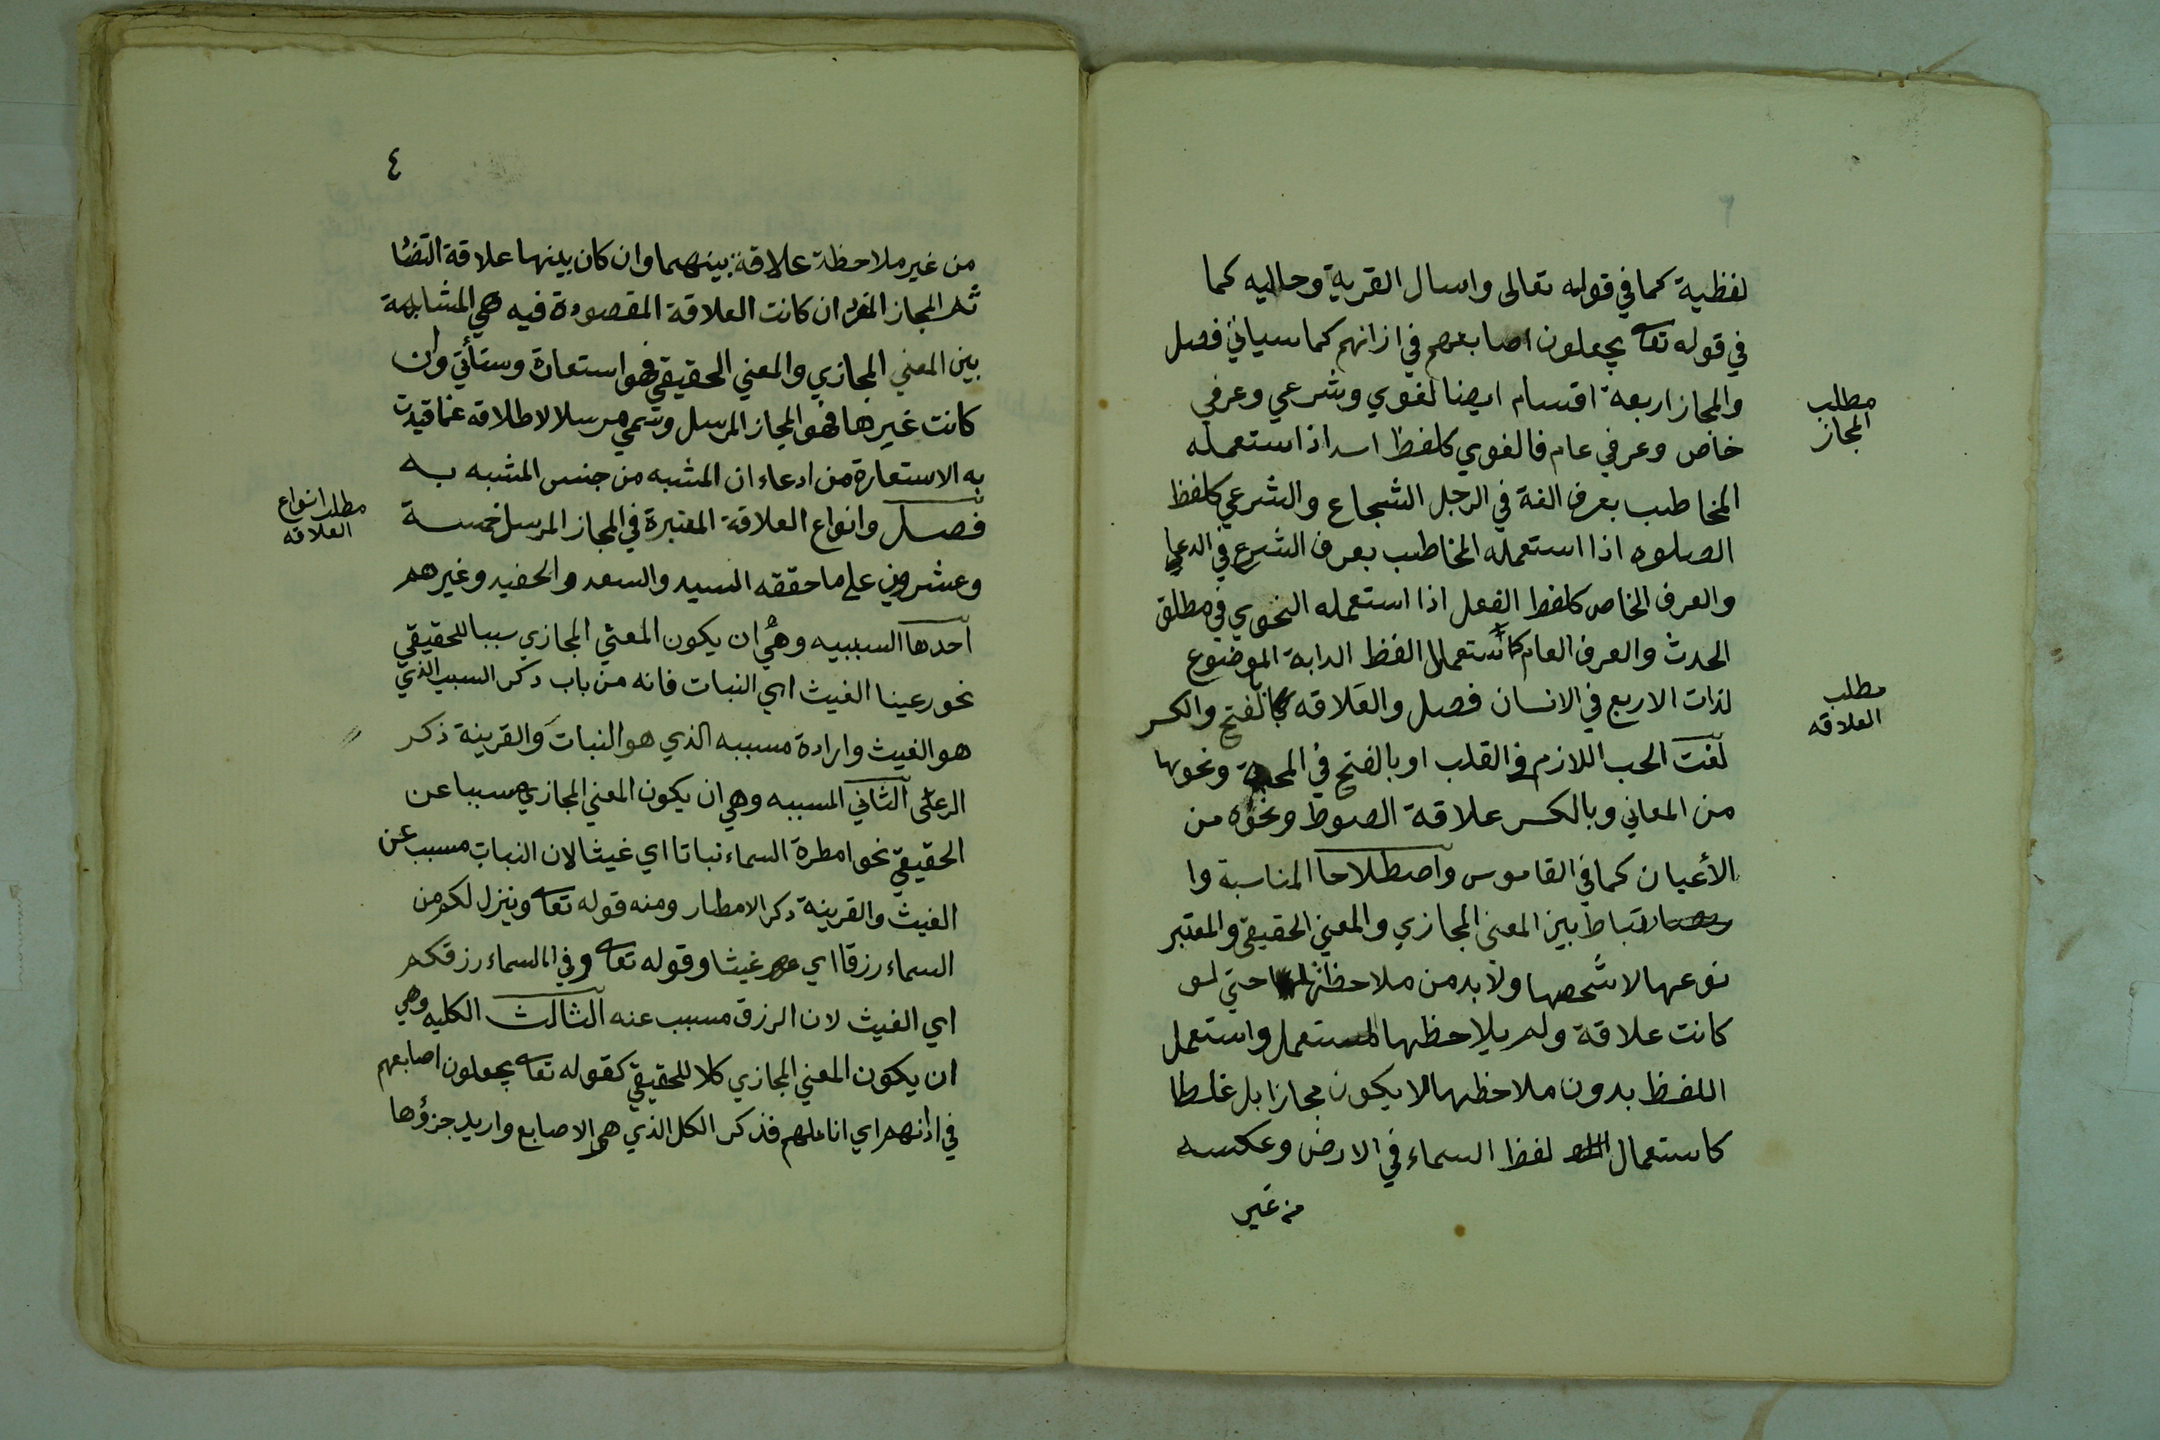 لفظية كما في قوله تعالى واسال القرية وحاليه كما
في قوله تعا يجعلون اصابعهم في اذانهم كما سياتي فصل
والمجاز اربعة اقسام ايضا لغوي وشرعي وعرفي
مطلب
المجاز
خاص وعرفي عام فالغوي كلفظ اسد اذا استعمله
المخاطب بعرف الغة في الرجل الشجاع والشرعي كلفظ
الصلوه اذا استعمله المخاطب بعرف الشرع في الدعا
والعرف الخاص كلفظ الفعل اذا استعمله النحوي في مطلق
الحدث والعرف العام كاستعمال لفظ الدابة الموضوع
لذات الاربع في الانسان فصل والعلاقه بالفتح والكسر
مطلب
العلاقه
لغت الحب اللازم في القلب او بالفتح في المحبة ونحوها
من المعاني وبالكسر علاقة الصوط ونحوه من
الأعيان كما في القاموس واصطلاحا المناسبة وا
رتباط بين المعنى المجازي والمعني الحقيقي والمعتبر
نوعها لا شخصها ولا بد من ملاحظتها حتي لو
كانت علاقة ولم يلاحظها المستعمل واستعمل
اللفظ بدون ملاحظها لا يكون مجازا بل غلطا
كاستعمال لفظ السماء في الارض وعكسه
من غير
٤
من غير ملاحظة علاقة بينهما وان كان بينها علاقة التضا
ثم المجاز المفرد ان كانت العلاقة المقصودة فيه هي المشابهة
بين المعني المجازي والمعني الحقيقي فهو استعارة وستأتي وان
كانت غيرها فهو المجاز المرسل وسمي مرسلا لاطلاقه عما قيدت
به الاستعارة من ادعاء ان المشبه من جنس المشبه به
فصل وانواع العلاقة المعتبرة في المجاز المرسل خمسة
مطلب انواع
العلاقه
وعشرون علي ما حققه السيد والسعد والحفيد وغيرهم
احدها السببيه وهي ان يكون المعني المجازي سببا للحقيقي
نحو رعينا الغيث اي النبات فانه من باب ذكر السبب الذي
هو الغيث وارادة مسببه الذي هو النبات والقرينة ذكر
الرعى الثاني المسببه وهي ان يكون المعني المجازي مسببا عن
الحقيقي نحو امطرة السماء نباتا اي غيثا لان النبات مسبب عن
الغيث والقرينة ذكر الامطار ومنه قوله تعا وينزل لكم من
السماء رزقا اي غيثا وقوله تعا وفي السماء رزقكم
اي الغيث لان الرزق مسبب عنه الثالث الكليه وهي
ان يكون المعني المجازي كلا للحقيقي كقوله تعا يجعلون اصابعهم
في اذانهم اي اناملهم فذكر الكل الذي هي الاصابع واريد جزؤها